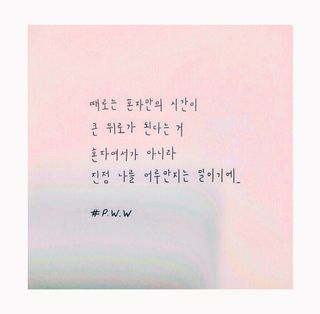 때로는 혼자만의 시간이
큰 위로가 된다는 거
혼자여서가 아니라
진정 나를 어루만지는 일이기에_
#P.W.W